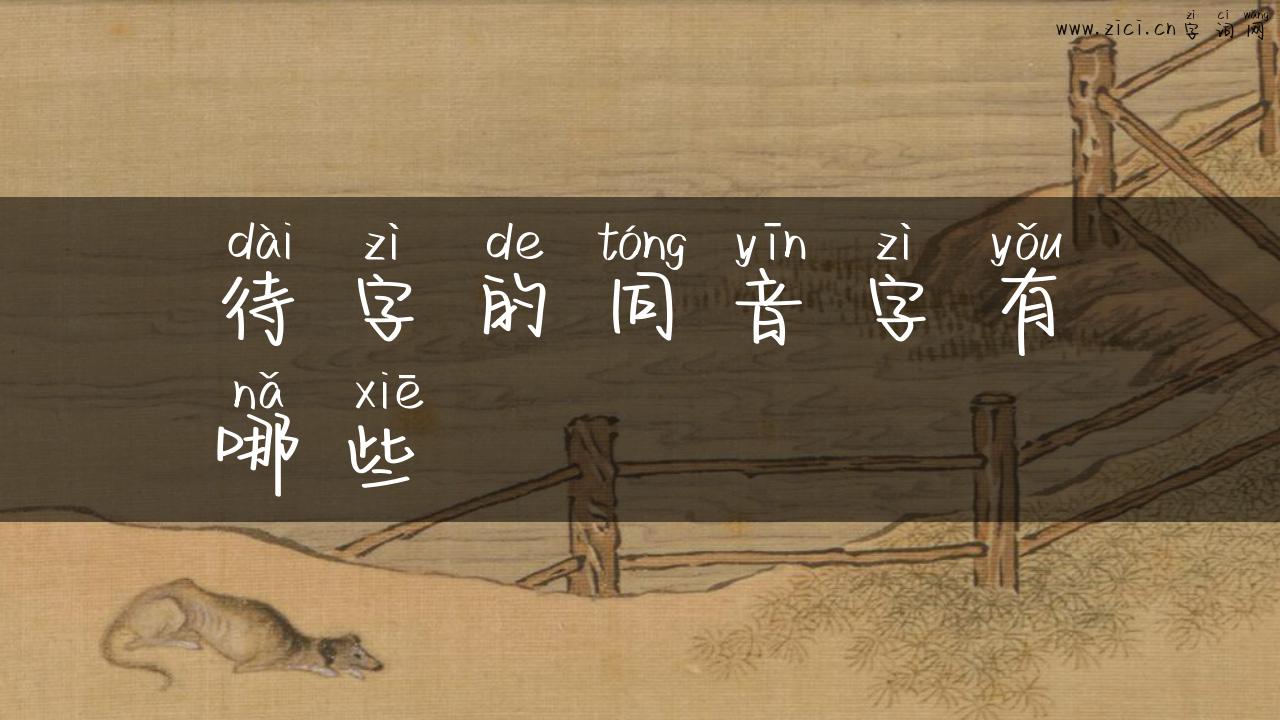 zì cí wǎng
www.zici.cn 字词网
dài zì de tóng yīn zì yǒu
待字的同音字有
nǎ xiē
哪些